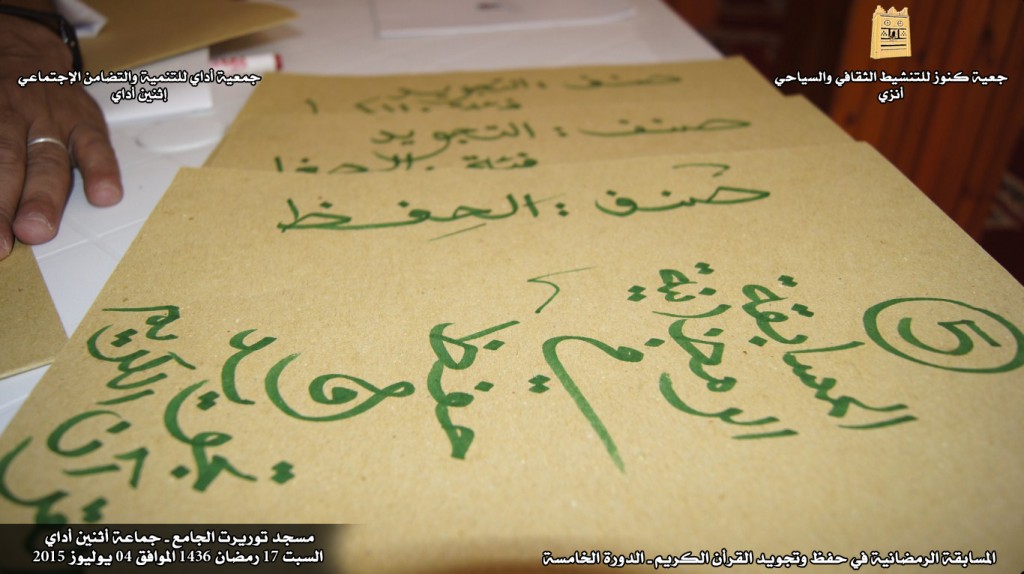 جمعية أداي للتنمية والتضامن الإجتماعي
إثنين أداي
جمعية كنوز للتنشيط الثقافي والسياحي
أنزي
صنف : التجويد
صنف : التجويد
فئة :
صنف : الحفظ
5
المسابقة
الرمضانية
في
حفظ
و
تجويد
القرآن الكريم
مسجد توريرت الجامع - جماعة أثنين أداي
السبت 17 رمضان 1436 الموافق 04 يوليوز 2015
المسابقة الرمضانية في حفظ وتجويد القرأن الكريم - الدورة الخامسة